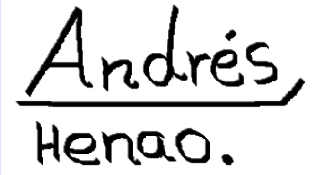 Andrés
Henao.